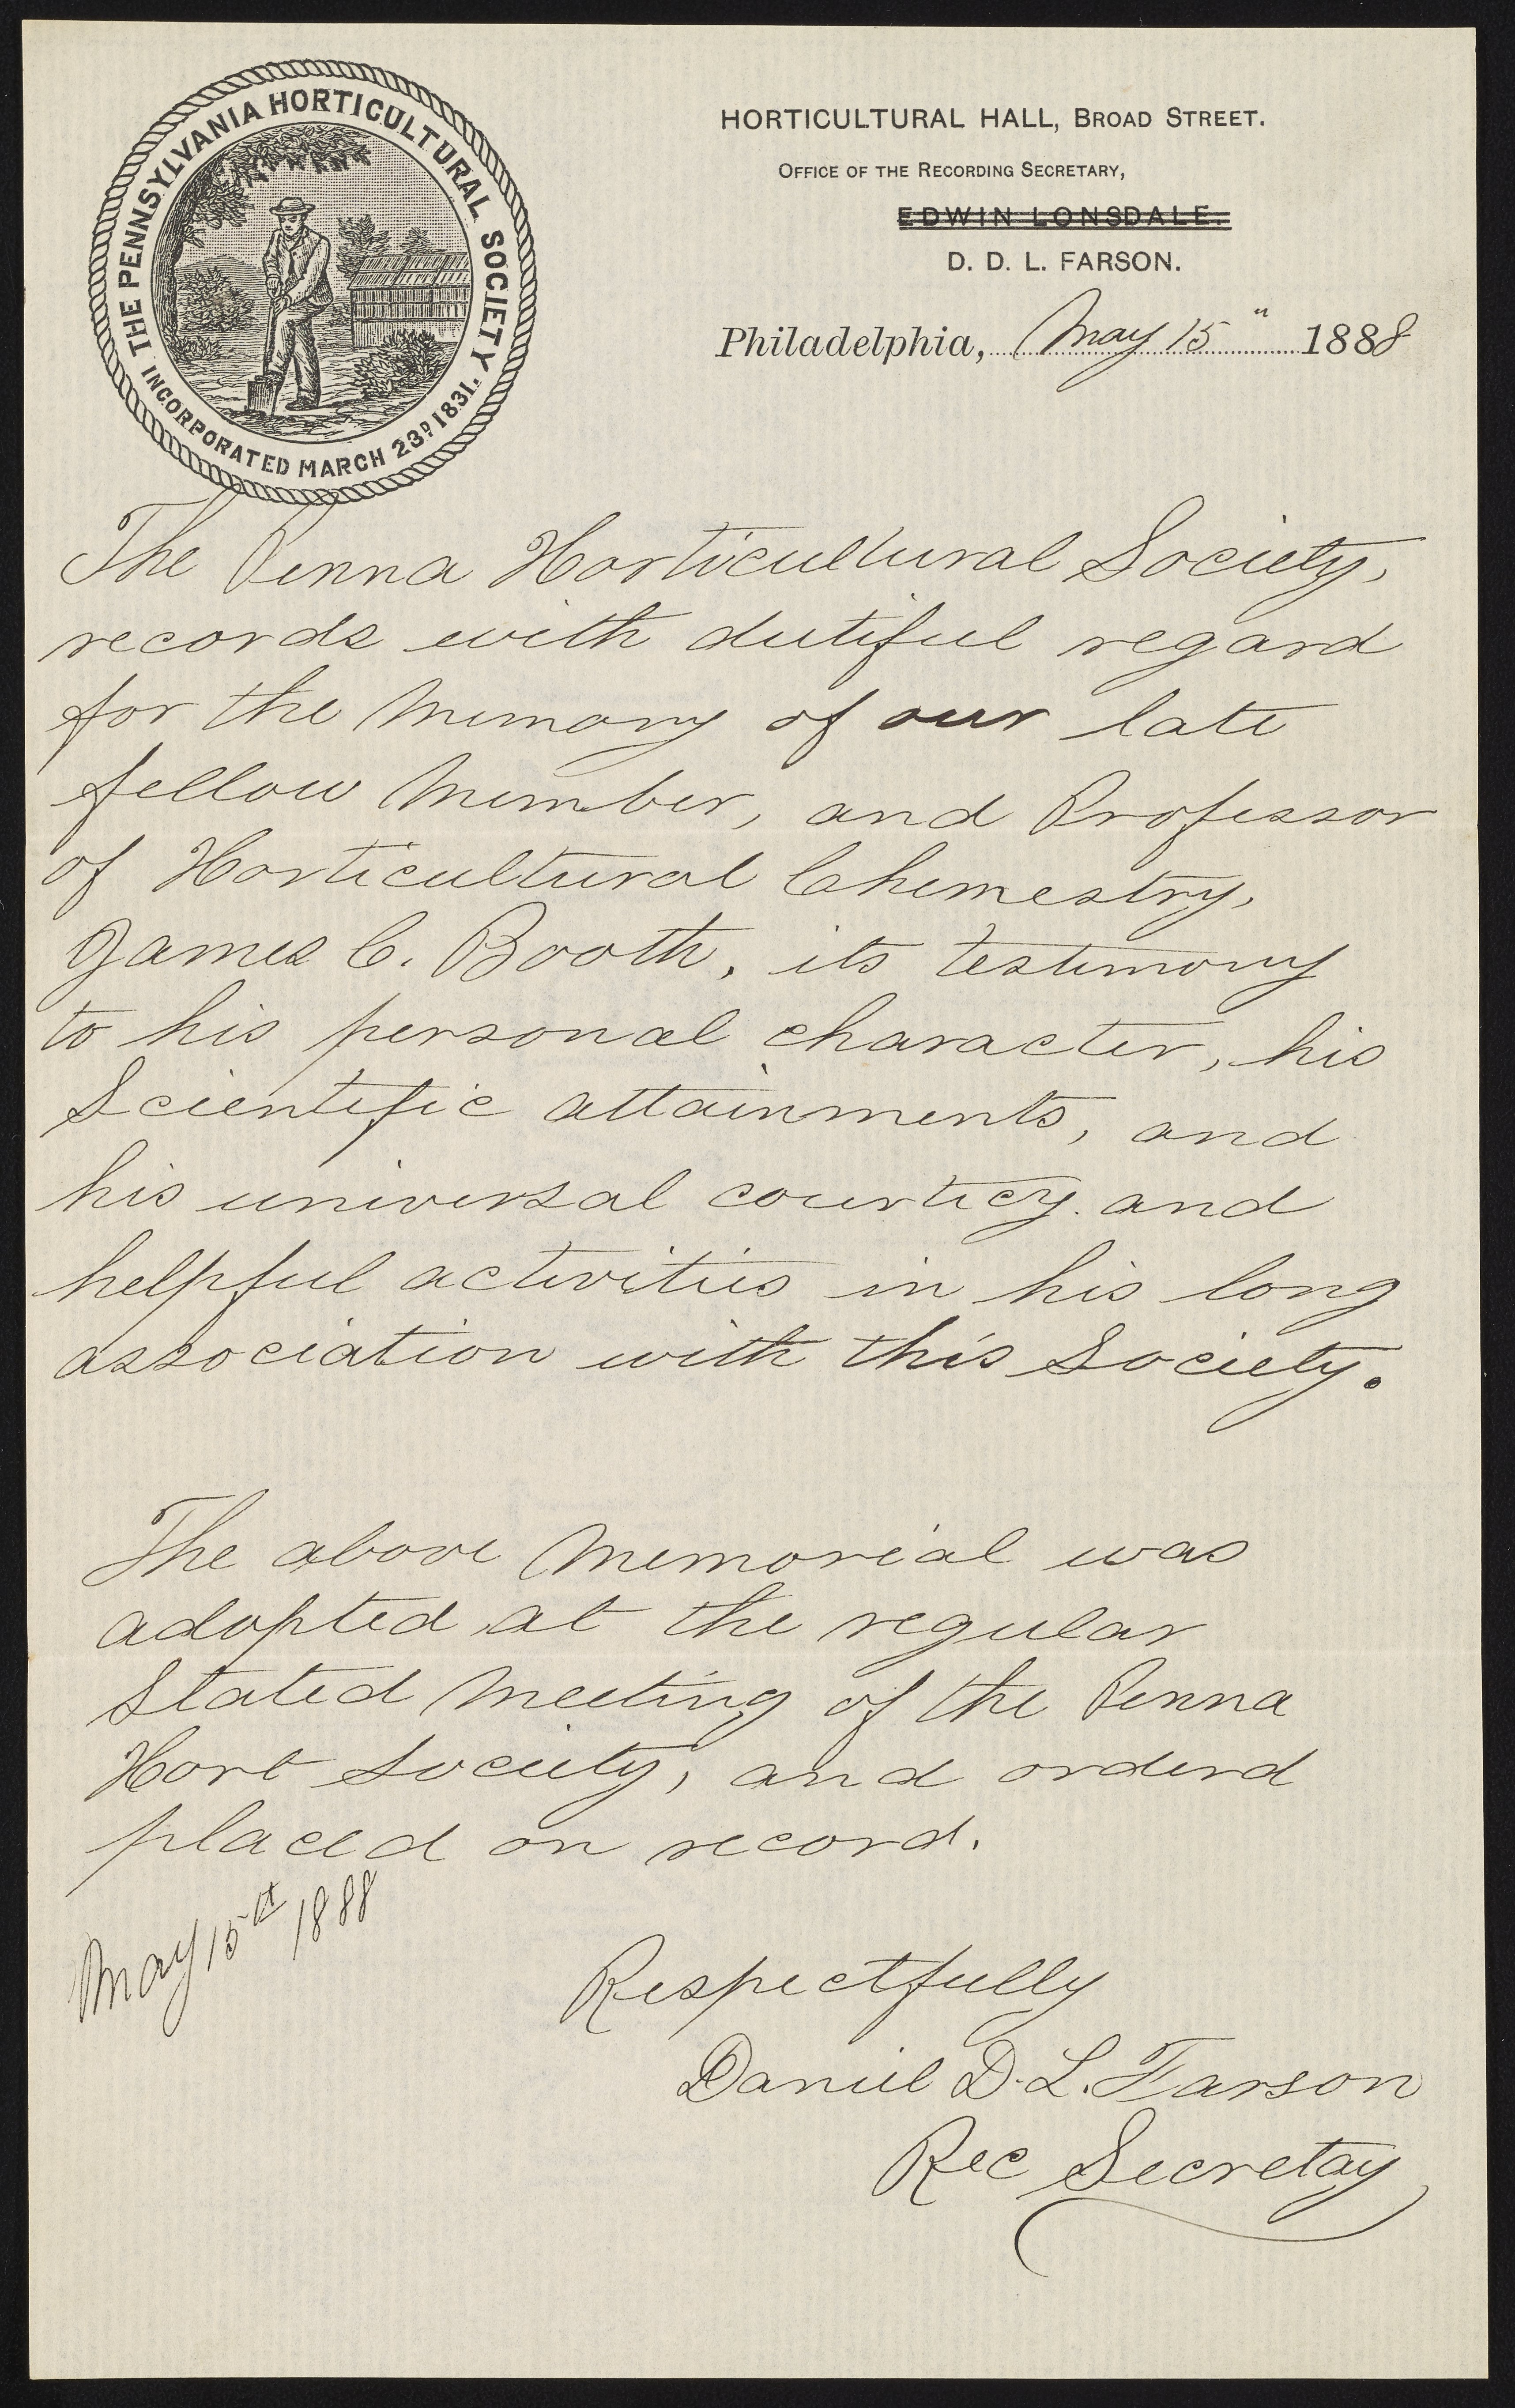 THE PENNSYLVANIA HORTICULTURAL SOCIETY
INCORPORATED MARCH 23D 1831.
HORTICULTURAL HALL, BROAD STREET.
OFFICE OF THE RECORDING SECRETARY,
EDWIN LONSDALE.
D. D. L. FARSON.
Philadelphia, May 15" 1888
The Penna Horticultural Society,
records with dutiful regard
for the Memory of our late
fellow Member, and Professor
of Horticultural Chemestry,
James C. Booth, its testimony
to his personal character, his
Scientific attainments, and
his universal courticy. and
helpful activities in his long
association with this Society.
The above Memorial was
adopted at the regular
Stated Meeting of the Penna
Hort Society, and orderd
placed on record.
May 15th 1888
Respectfully
Daniel D. L. Farson
Rec Secretay